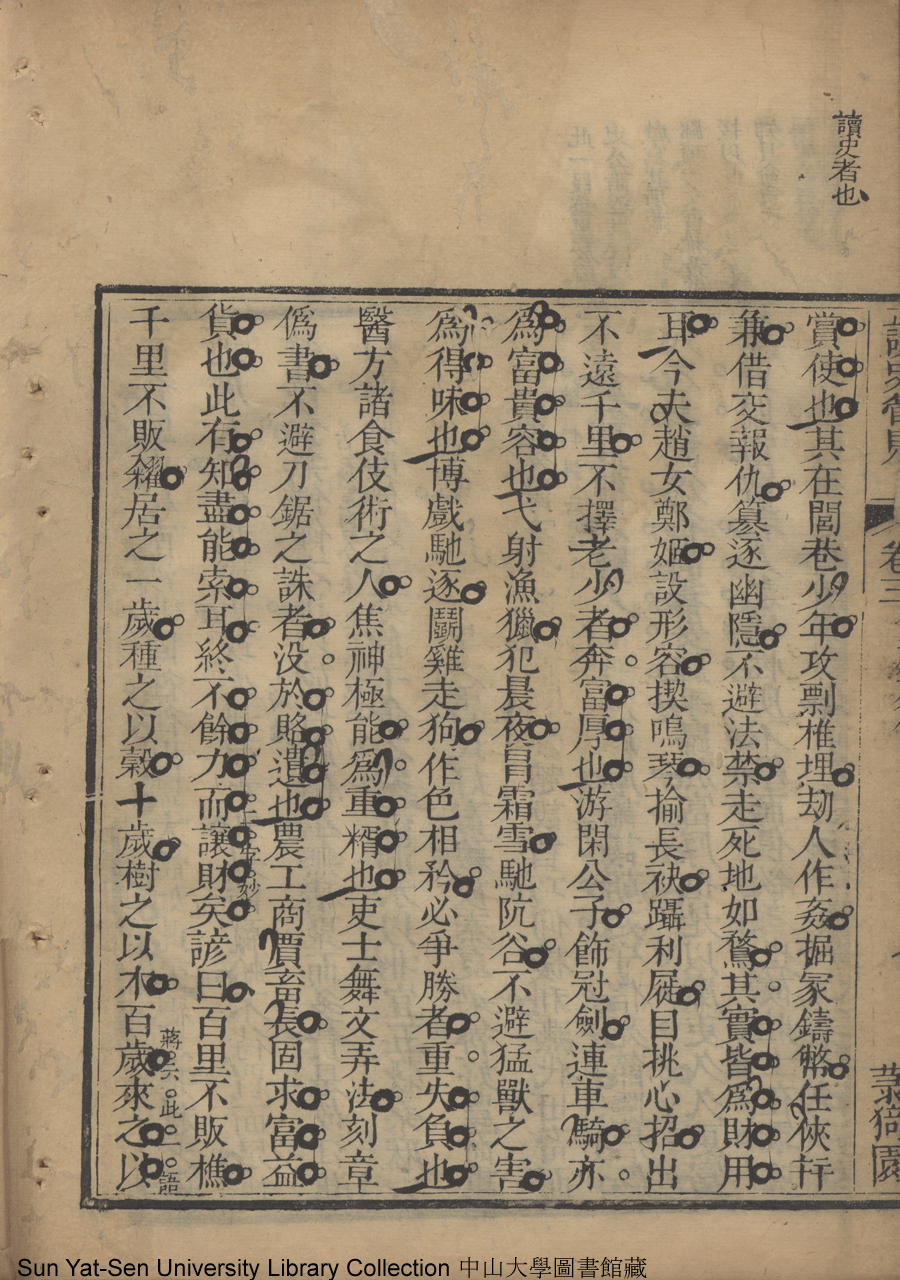 讀史者也
賞使也其在閭巷少年攻剽椎埋劫人作姦掘冢鑄幣任俠幷
兼借交報仇篡逐幽隱不避法禁走死地如鶩其實皆爲財用
耳今夫趙女鄭姬設形容揳鳴琴揄長袂躡利屣目挑心招出
不遠千里不擇老少者奔富厚也游閑公子飾冠劍連車騎亦
爲富貴容也弋射漁獵犯晨夜冒霜雪馳阬谷不避猛獸之害
爲得味也博戲馳逐鬭雞走狗作色相矜必爭勝者重失負也
醫方諸食伎術之人焦神極能爲重糈也吏士舞文弄法刻章
僞書不避刀鋸之誅者没於賂遺也農工商賈畜長固求富益
貨也此有知盡能索耳終不餘力而讓財矣諺曰百里不販樵
千里不販糴居之一歲種之以穀十歲樹之以木百歲來之以
卷三
園
字妙
蔣云此一語
Sun Yat-Sen University Library Collection 中山大學圖書館藏